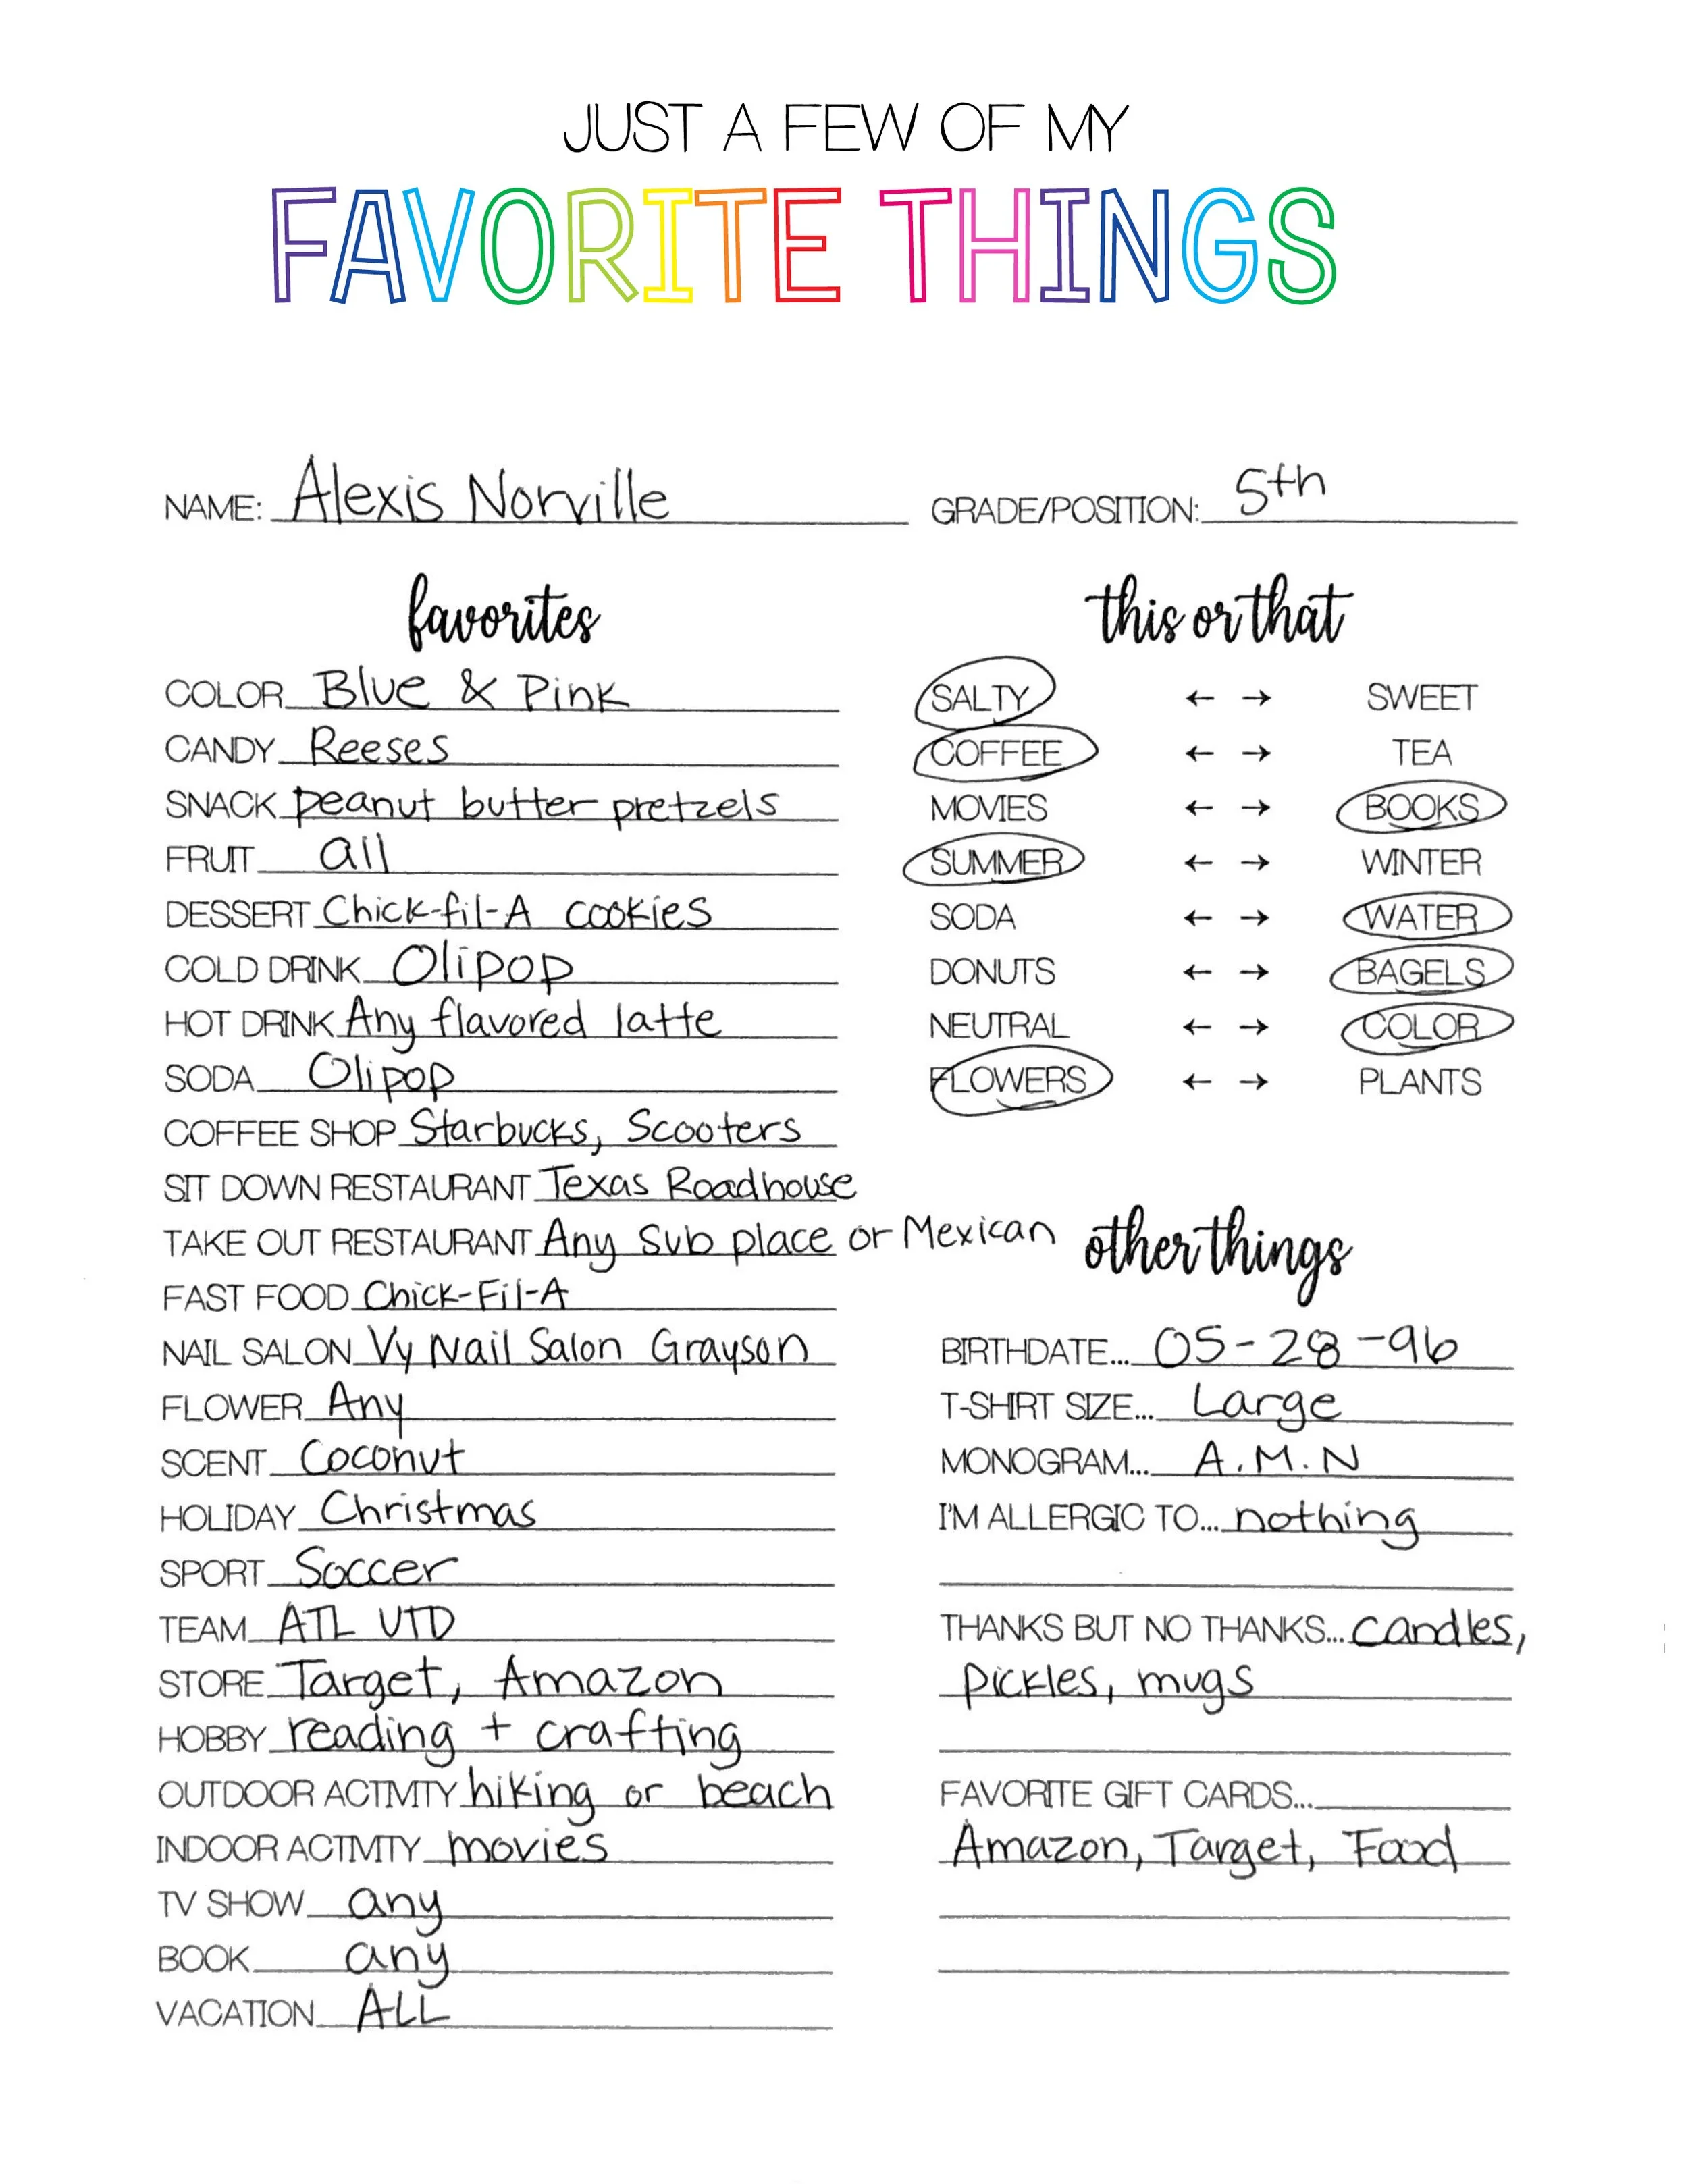 JUST A FEW OF MY
FAVORITE THINGS
NAME: Alexis Norville
GRADE/POSITION: 5th
favorites
COLOR Blue & Pink
CANDY Reeses
SNACK peanut butter pretzels
FRUIT all
DESSERT Chick-fil-A cookies
COLD DRINK Olipop
HOT DRINK Any flavored latte
SODA Olipop
COFFEE SHOP Starbucks, Scooters
SIT DOWN RESTAURANT Texas Roadhouse
TAKE OUT RESTAURANT Any Sub place or Mexican
FAST FOOD Chick-Fil-A
NAIL SALON Vy Nail Salon Grayson
FLOWER Any
SCENT Coconut
HOLIDAY Christmas
SPORT Soccer
TEAM ATL UTD
STORE Target, Amazon
HOBBY reading + crafting
OUTDOOR ACTIVITY hiking or beach
INDOOR ACTIVITY movies
TV SHOW any
BOOK any
VACATION ALL
this or that
SALTY ← → SWEET
COFFEE ← → TEA
MOVIES ← → BOOKS
SUMMER ← → WINTER
SODA ← → WATER
DONUTS ← → BAGELS
NEUTRAL ← → COLOR
FLOWERS ← → PLANTS
other things
BIRTHDATE... 05-28-96
T-SHIRT SIZE... Large
MONOGRAM... A.M.N
I'M ALLERGIC TO... nothing
THANKS BUT NO THANKS... candles,
pickles, mugs
FAVORITE GIFT CARDS...
Amazon, Target, Food